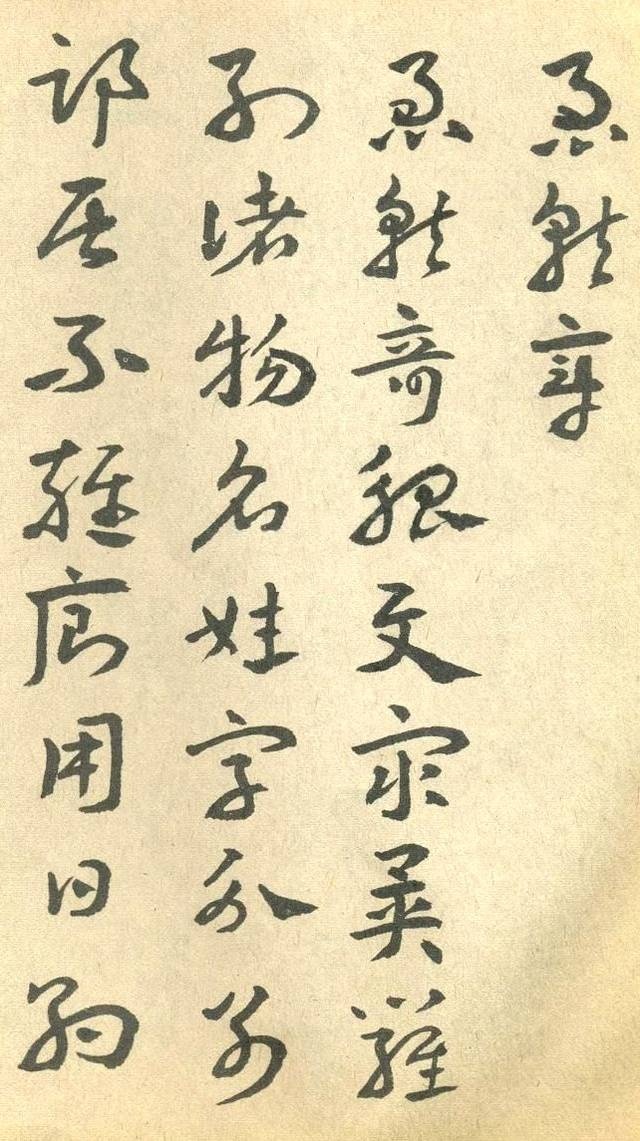 急就章
急就奇觚與衆異羅
列諸物名姓字分別
部居不雜廁用日約